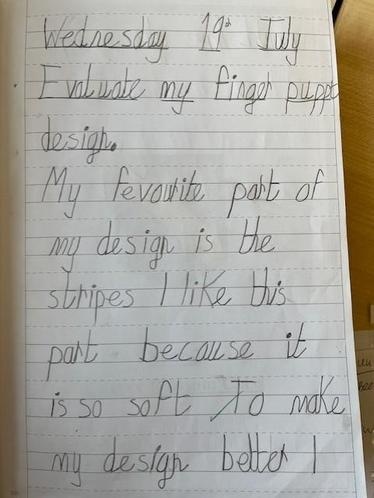 Wednesday 19th July
Evaluate my finger puppet
design.
My fevourite part of
my design is the
stripes I like this
part because it
is so soft To make
my design better I